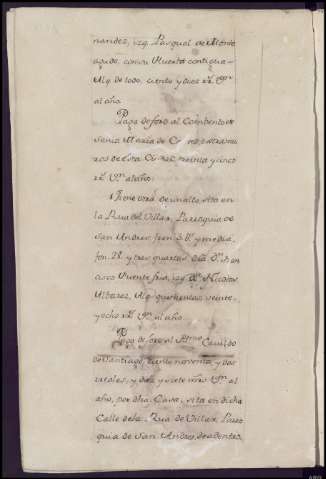 nandez, izq. Pasqual de Monte
agudo, con su Huerta contigua
Alq. de todo, ciento y diez rs. Vn.
al año.
Pága de foro al Combento de
Santa Maria de
de esta Ciud. treinta y cinco
rs. Vn. al año.
Tiene otra de un alto, sita en
la Rua del Villar, Parroquia de
San Andres, fren. 3 vs. y media,
fon. 21. y tres quartas, dra. Dn. Fran
cisco Vicente frio, izq. Dn. Nicolas
Albarez, Alq. quinientos, veinte
y ocho rs. Vn. al año.
Pága de foro al Cavildo
de Santiago, ciento noventa y dos
rreales, y diez y siete mrs. Vn. al
año, por dha. Casa, sita en dicha
Calle de la Rua de Villar, Parro
quia de San Andres,